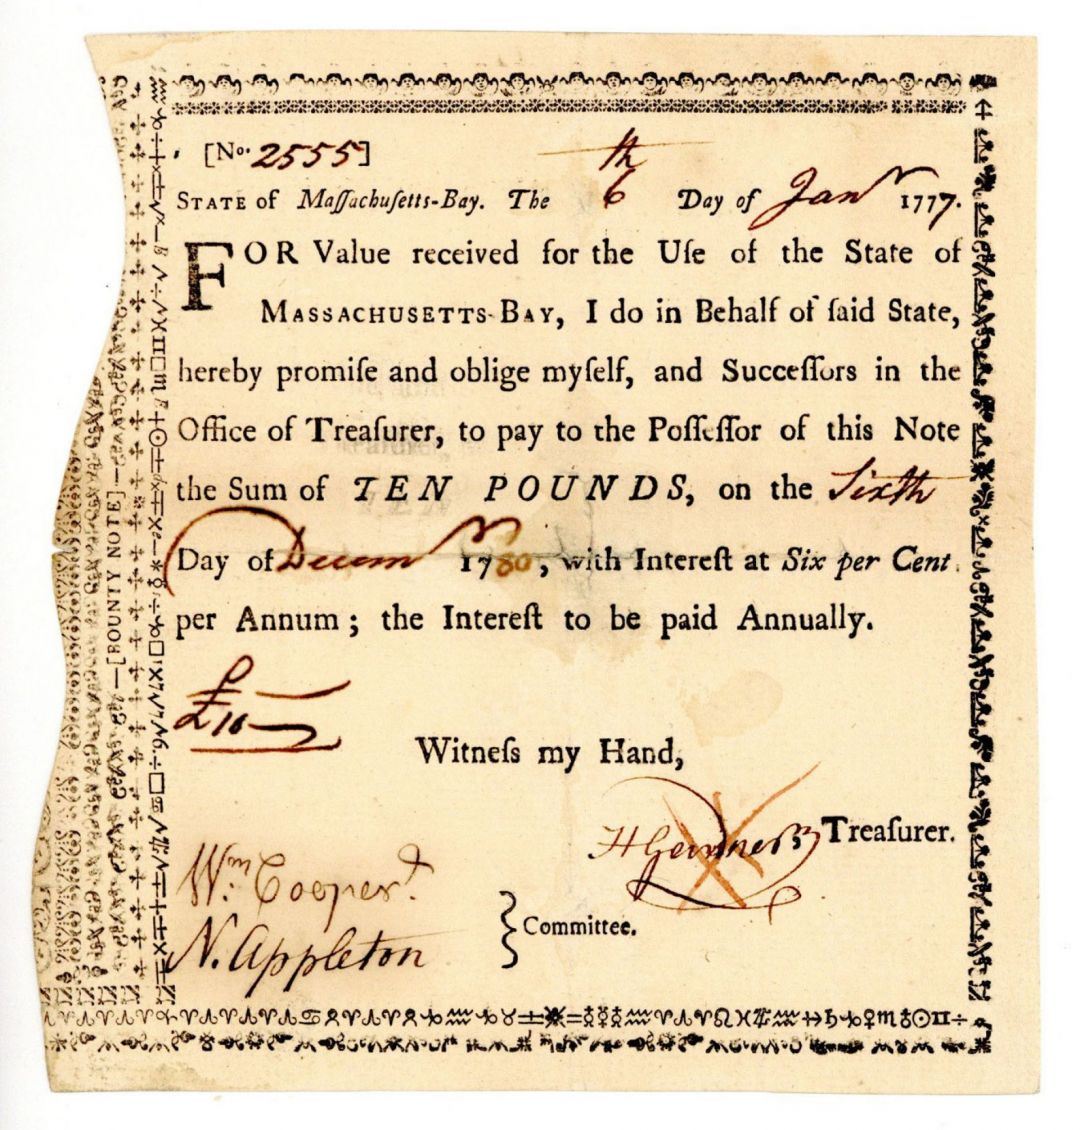 [No. 2555]
STATE of Maſſachuſetts-Bay. The 6th Day of Janr 1777.
FOR Value received for the Uſe of the State of
MASSACHUSETTS-BAY, I do in Behalf of ſaid State,
hereby promiſe and oblige myſelf, and Succeſſors in the
Office of Treaſurer, to pay to the Poſſeſſor of this Note
the Sum of TEN POUNDS, on the Sixth
Day of Decemr 1780, with Intereſt at Six per Cent.
per Annum; the Intereſt to be paid Annually.
£10
Witneſs my Hand,
HGardner Treaſurer.
Wm. Cooper
N. Appleton
Committee.
[BOUNTY NOTE]